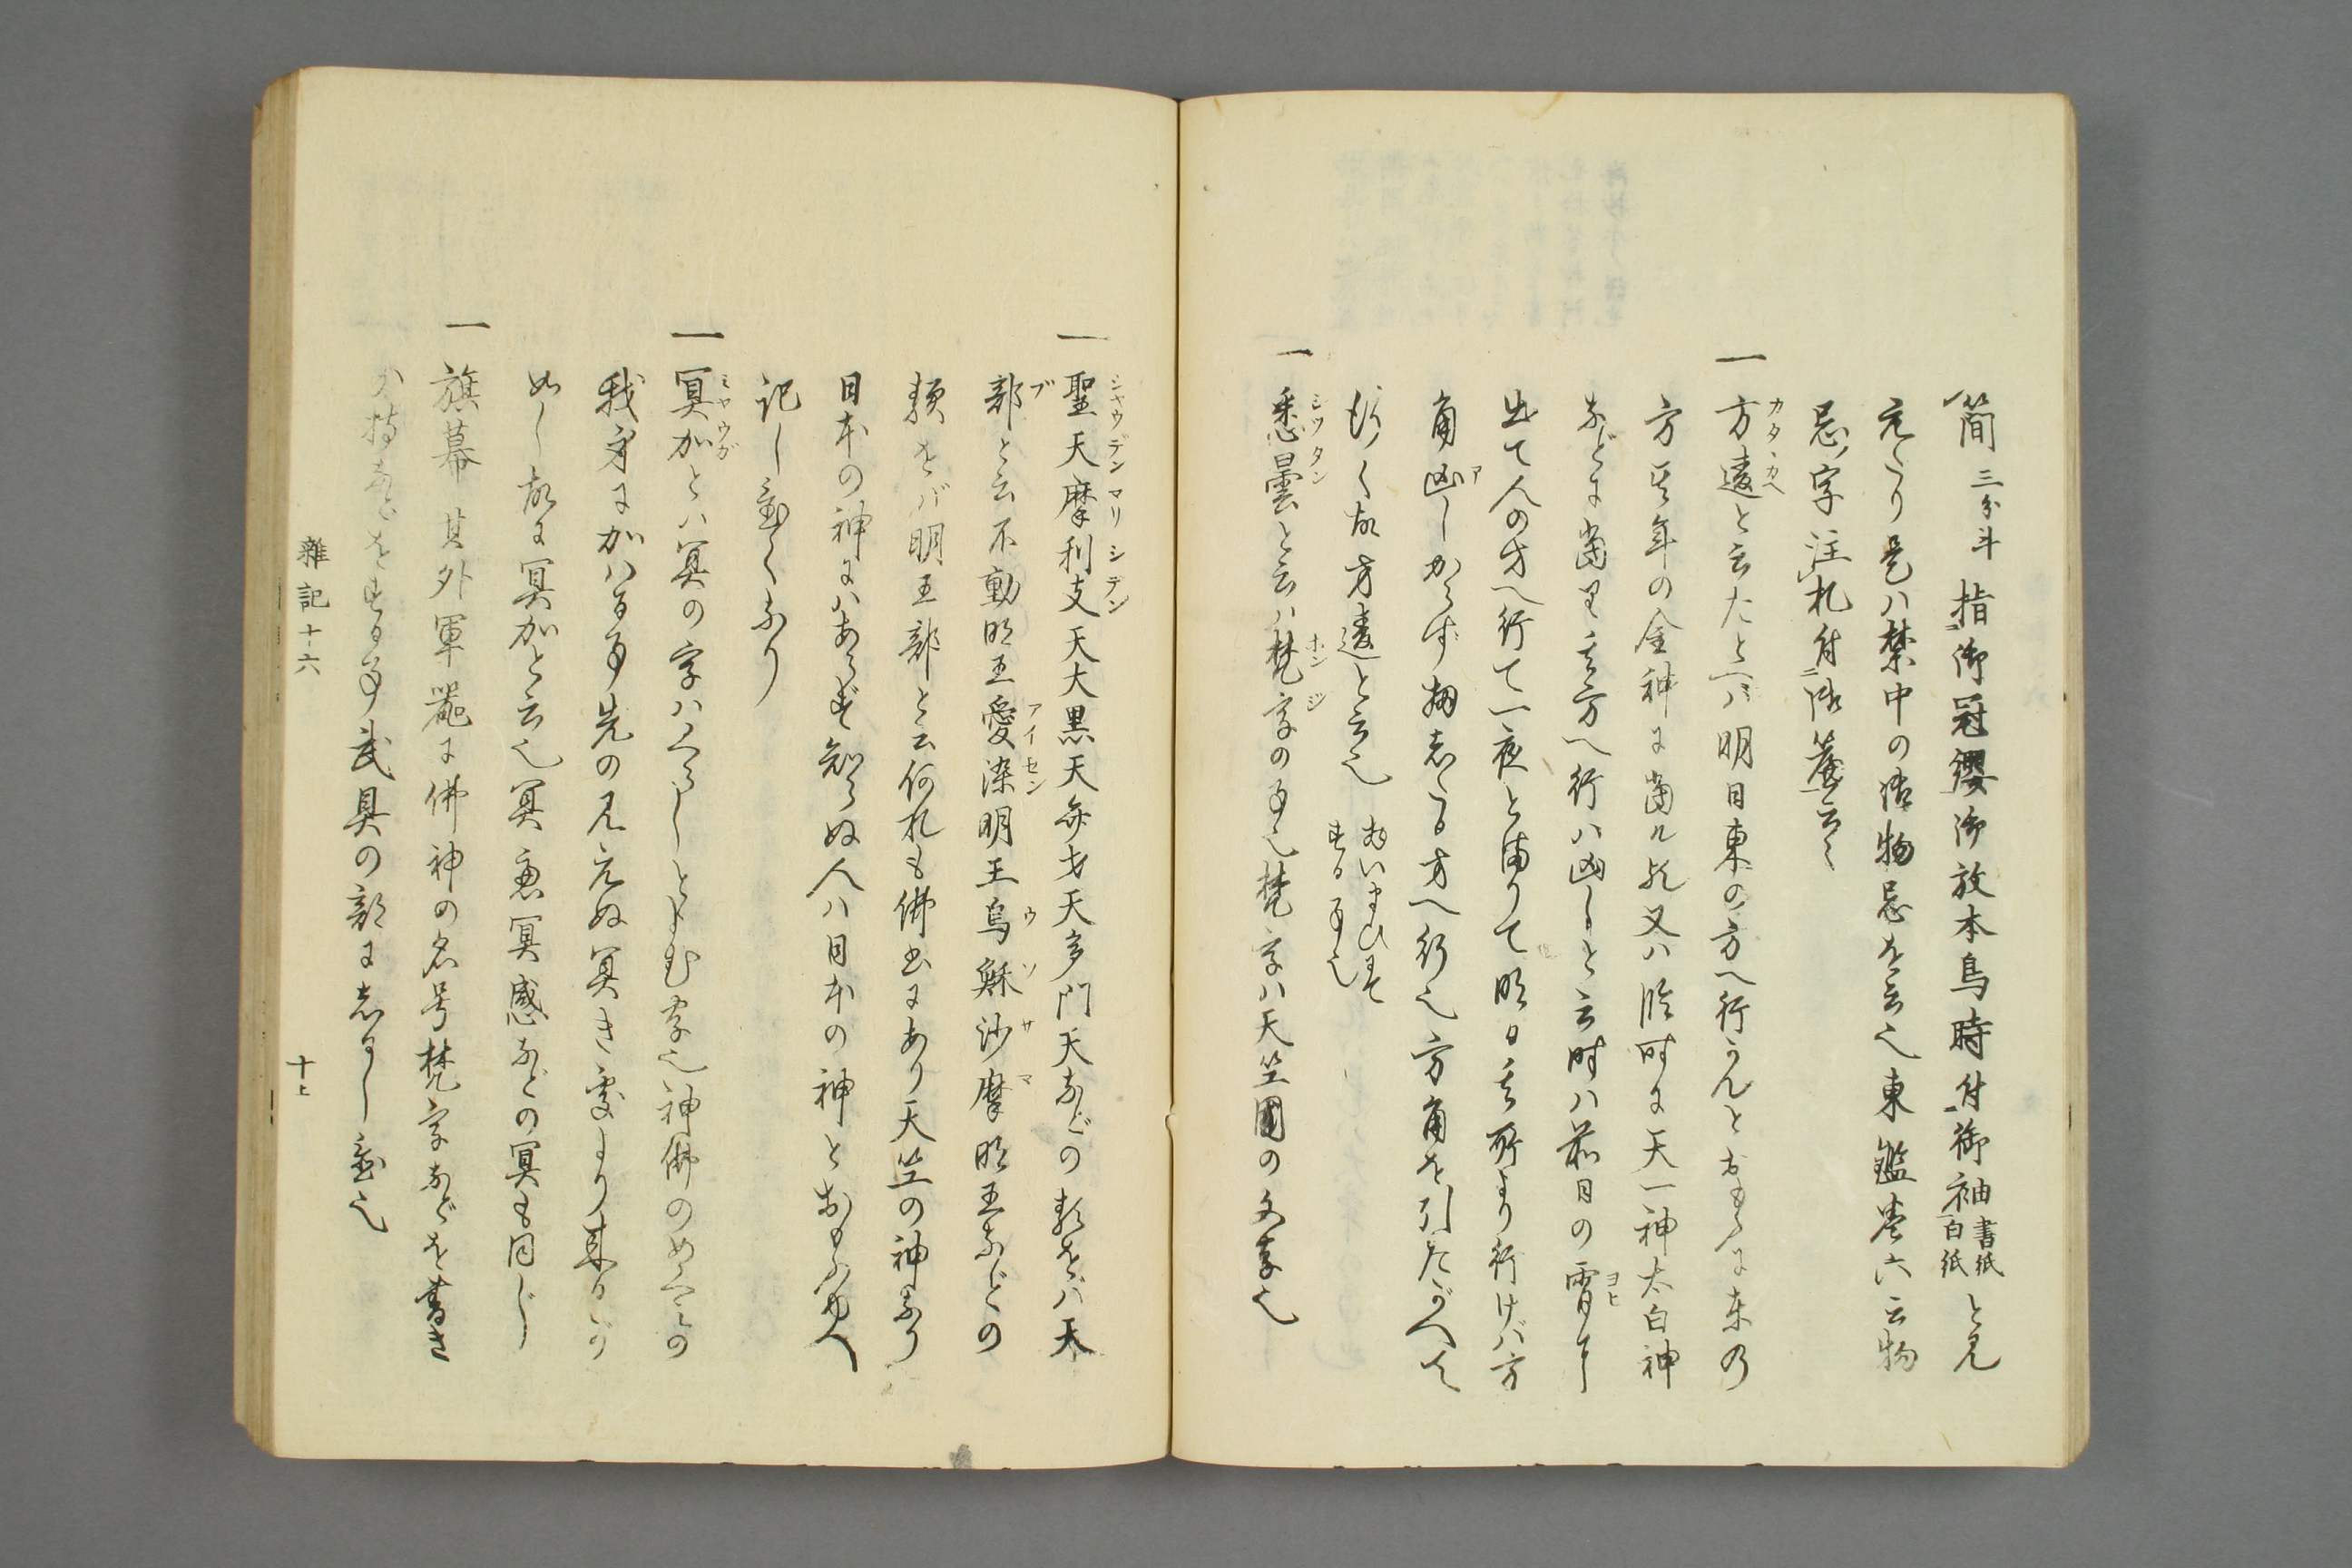 簡三分斗指御冠纓御放本鳥時付御袖書紙白紙と見
元たり是ハ禁中の御物忌を云也東鑑巻六云物
忌ノ字注札付御簾云々
一方違と云たとへハ明日東の方へ行かんとおもふに東の
方其年の金神に当ル歟又ハ臨時に天一神太白神
などに当り其方へ行ハ凶しと云時ハ前日の宵に
出て人の方へ行て一夜とまりて明日其所より行けバ方
角凶しからず扨志す方へ行也方角を引たがへて
行く故方違と云也いまひをする事也
一悉曇と云ハ梵字の事也梵字ハ天竺國の文字也
一聖天摩利支天大黒天弁才天多門天などの類をバ天
部と云不動明王愛染明王烏蘇沙摩明王などの
類をバ明王部と云何れも佛書にあり天竺の神なり
日本の神にハあらず知らぬ人ハ日本の神とおもふ故
記し置くなり
一冥加とハ冥の字ハくらしとよむ字也神佛のめぐみの
我身に加ハる事先の見えぬ冥き処より来るが
如し故に冥加と云也冥慮冥感などの冥も同じ
一旗幕其外軍器に佛神の名号梵字などを書き
加持などをする事武具の部に志るし置也
雑記十六
十七
シヤウデンマリシデン
ブ
アイセン
ウソサマ
ミヤウガ
カタヽカヘ
ヨヒ
ア
シツタン
ボンジ